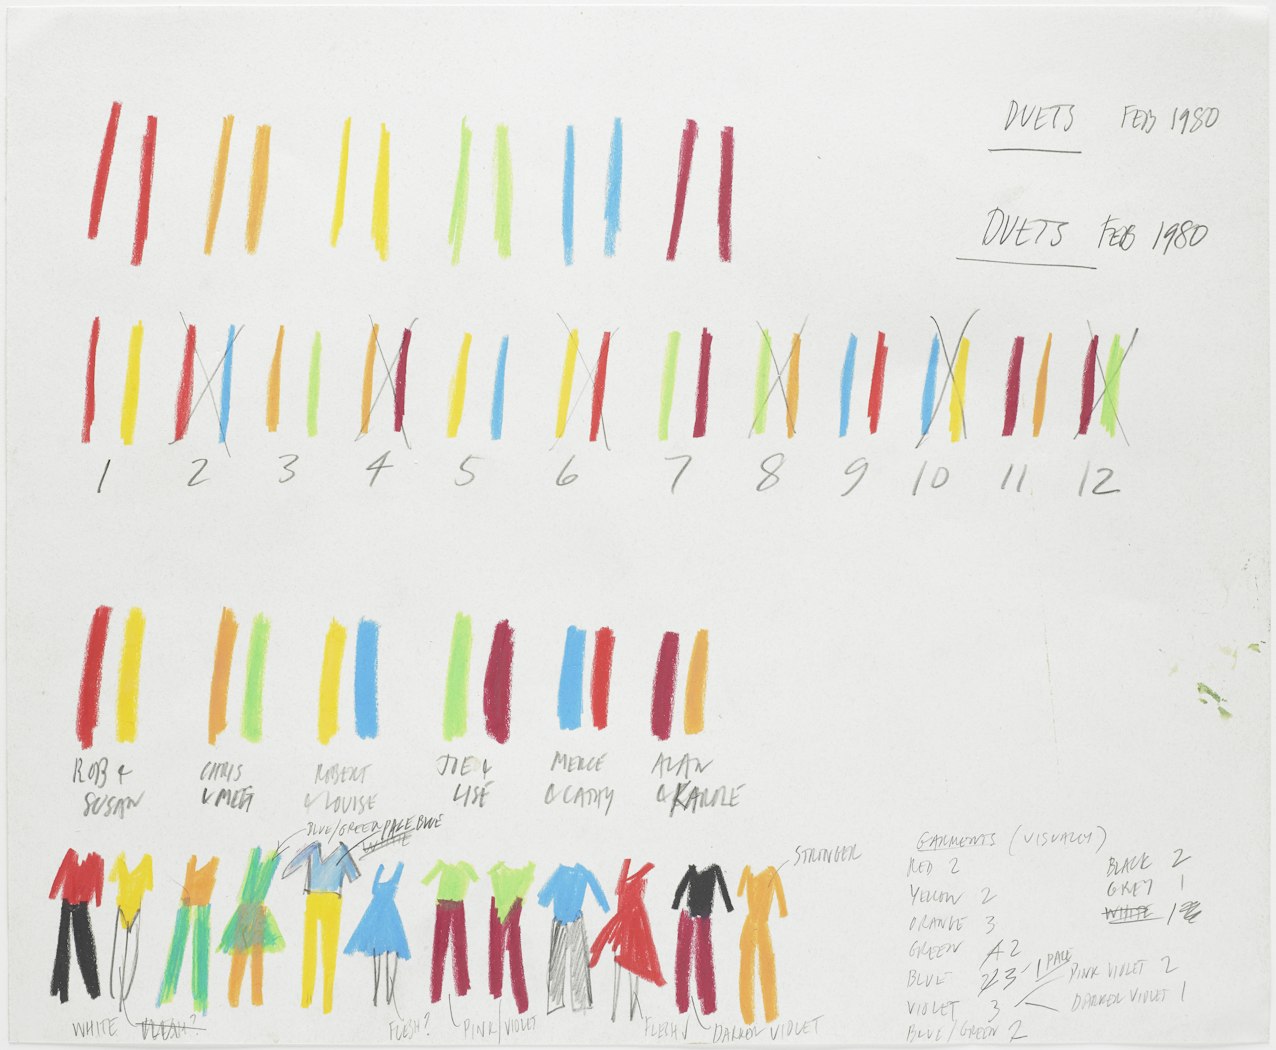 DUETS FEB 1980
DUETS FEB 1980
1 2 3 4 5 6 7 8 9 10 11 12
ROB & SUSAN
CHRIS & MEG
ROBERT & LOUISE
JOE & LISE
MERCE & CATHY
ALAN & KAROLE
BLUE/GREEN PALE BLUE
WHITE
STRONGER
WHITE FLESH?
FLESH?
PINK/VIOLET
FLESH
DARKER VIOLET
GARMENTS (VISUALLY)
RED 2
YELLOW 2
ORANGE 3
GREEN 2
BLUE 3 - 1 PALE
VIOLET 3
PINK VIOLET 2
DARKER VIOLET 1
BLUE/GREEN 2
BLACK 2
GREY 1
WHITE 1